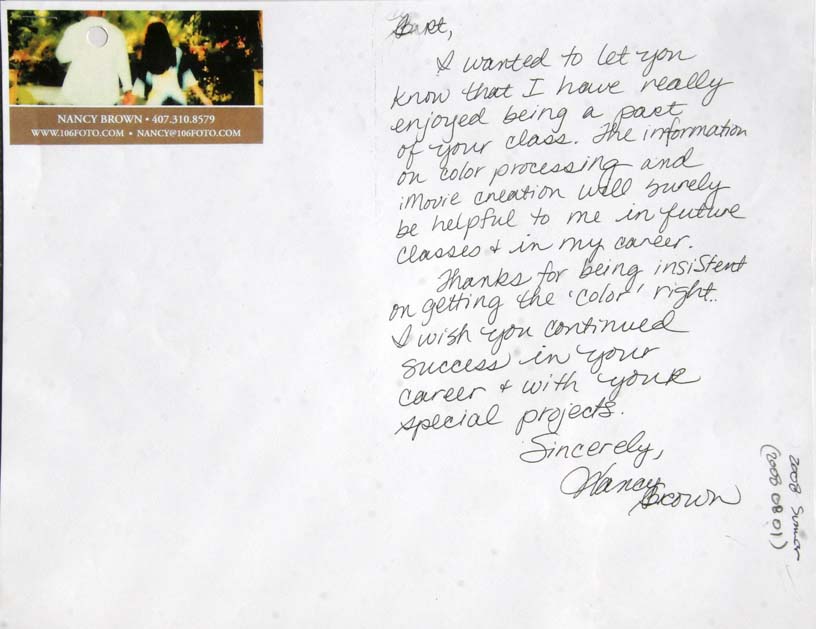 NANCY BROWN • 407.310.8579
WWW.106FOTO.COM • NANCY@106FOTO.COM
Bart,
I wanted to let you
know that I have really
enjoyed being a part
of your class. The information
on color processing and
iMovie creation will surely
be helpful to me in future
classes & in my career.
Thanks for being insistent
on getting the 'color' right..
I wish you continued
success in your
career & with your
special projects.
Sincerely,
Nancy
Brown
2008 Summar
(2008 08 01)